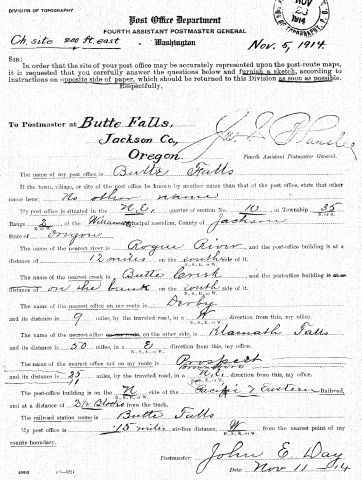 DIVISION OF TOPOGRAPHY
Post Office Department
FOURTH ASSISTANT POSTMASTER GENERAL
Ch. site 200 ft. east
Washington
Nov. 5, 1914.
NOV
1914
SIR:
In order that the site of your post office may be accurately represented upon the post-route maps,
it is requested that you carefully answer the questions below and furnish a sketch, according to
instructions on opposite side of paper, which should be returned to this Division as soon as possible.
Respectfully,
To Postmaster at Butte Falls,
Jackson Co,
Oregon.
Fourth Assistant Postmaster General.
The name of my post office is Butte Falls
If the town, village, or site of the post office be known by another name than that of the post office, state that other
name here: No other name
My post office is situated in the N.E. quarter of section No. 10, in Township 35
Range 2, of the Willamette principal meridian, County of Jackson
State of Oregon
The name of the nearest river is Rogue River, and the post-office building is at a
distance of 12 miles on the south side of it.
The name of the nearest creek is Butte Creek, and the post-office building is at a
distance of on the bank on the south side of it.
The name of the nearest office on my route is Derby
and its distance is 9 miles, by the traveled road, in a W direction from this, my office.
The name of the nearest office on my route, on the other side, is Klamath Falls
and its distance is 50 miles, by the traveled road, in a E direction from this, my office.
The name of the nearest office not on my route is Prospect
and its distance is 25 miles, by the traveled road, in a N.E. direction from this, my office.
The post-office building is on the N side of the Pacific & Eastern Railroad,
and at a distance of Blocks from the track.
The railroad station name is Butte Falls
My post office is 15 miles, air-line distance, W from the nearest point of my
county boundary.
Postmaster: John E Day
Date Nov 11 - 14